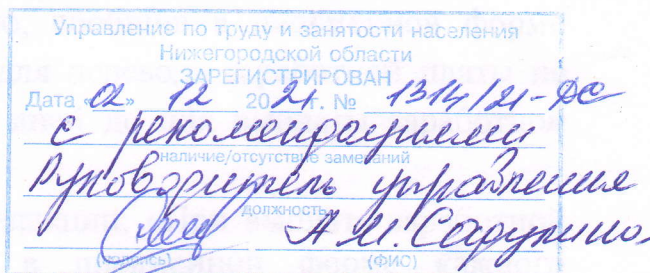 Управление по труду и занятости населения
Нижегородской области
ЗАРЕГИСТРИРОВАН
Дата «02» 12 2021г. № 1314/21-ДС
с рекомендациями
наличие/отсутствие замечаний
Руководитель управления
должность
А.М. Садулина
(подпись) (ФИО)